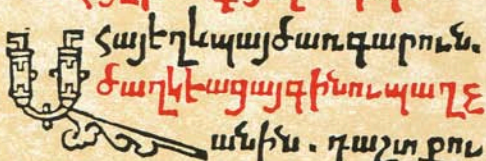 Ահայեղևպայծառգարուն.
ծաղկեացայգինուպաղչ
անին. դաշտ բու